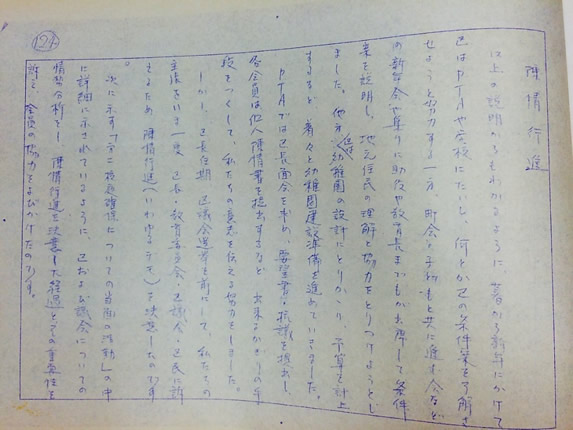 124
陳情行進
以上の説明からもわかるように、暮から新年にかけて
区はPTAや会校にたいし、何とか区の条件案を了解さ
せようと努力する一方、町会と子わもと共に進む会など
の新年会や集りに助役や教育長までもが出席して条件
案を説明し、地元住民の理解と協力をとりつけようとし
ました。他方区は幼稚園の設計にとりかかり、予算を計上
するなど着々と幼稚園建設準備を進めていきました。
PTAでは区長面会を求め、要望書・抗議を提出し、
各会員は個人陳情書を提出するなど、出来るかぎりの手
段をつくして、私たちの意志を伝える努力をしました。
しかし、区長任期、区議会選挙を前にして、私たちの
主張をいま一度、区長・教育委員会・区議会・区民に訴
えるため、陳情行進（いわゆるデモ）を決意したのです
。
次に示す「校庭確保についての当面の活動」の中
に詳細に示されているように、区および議会についての
情勢分析をし、陳情行進を決意した経過とその重要性を
訴え、全員の協力をよびかけたのです。